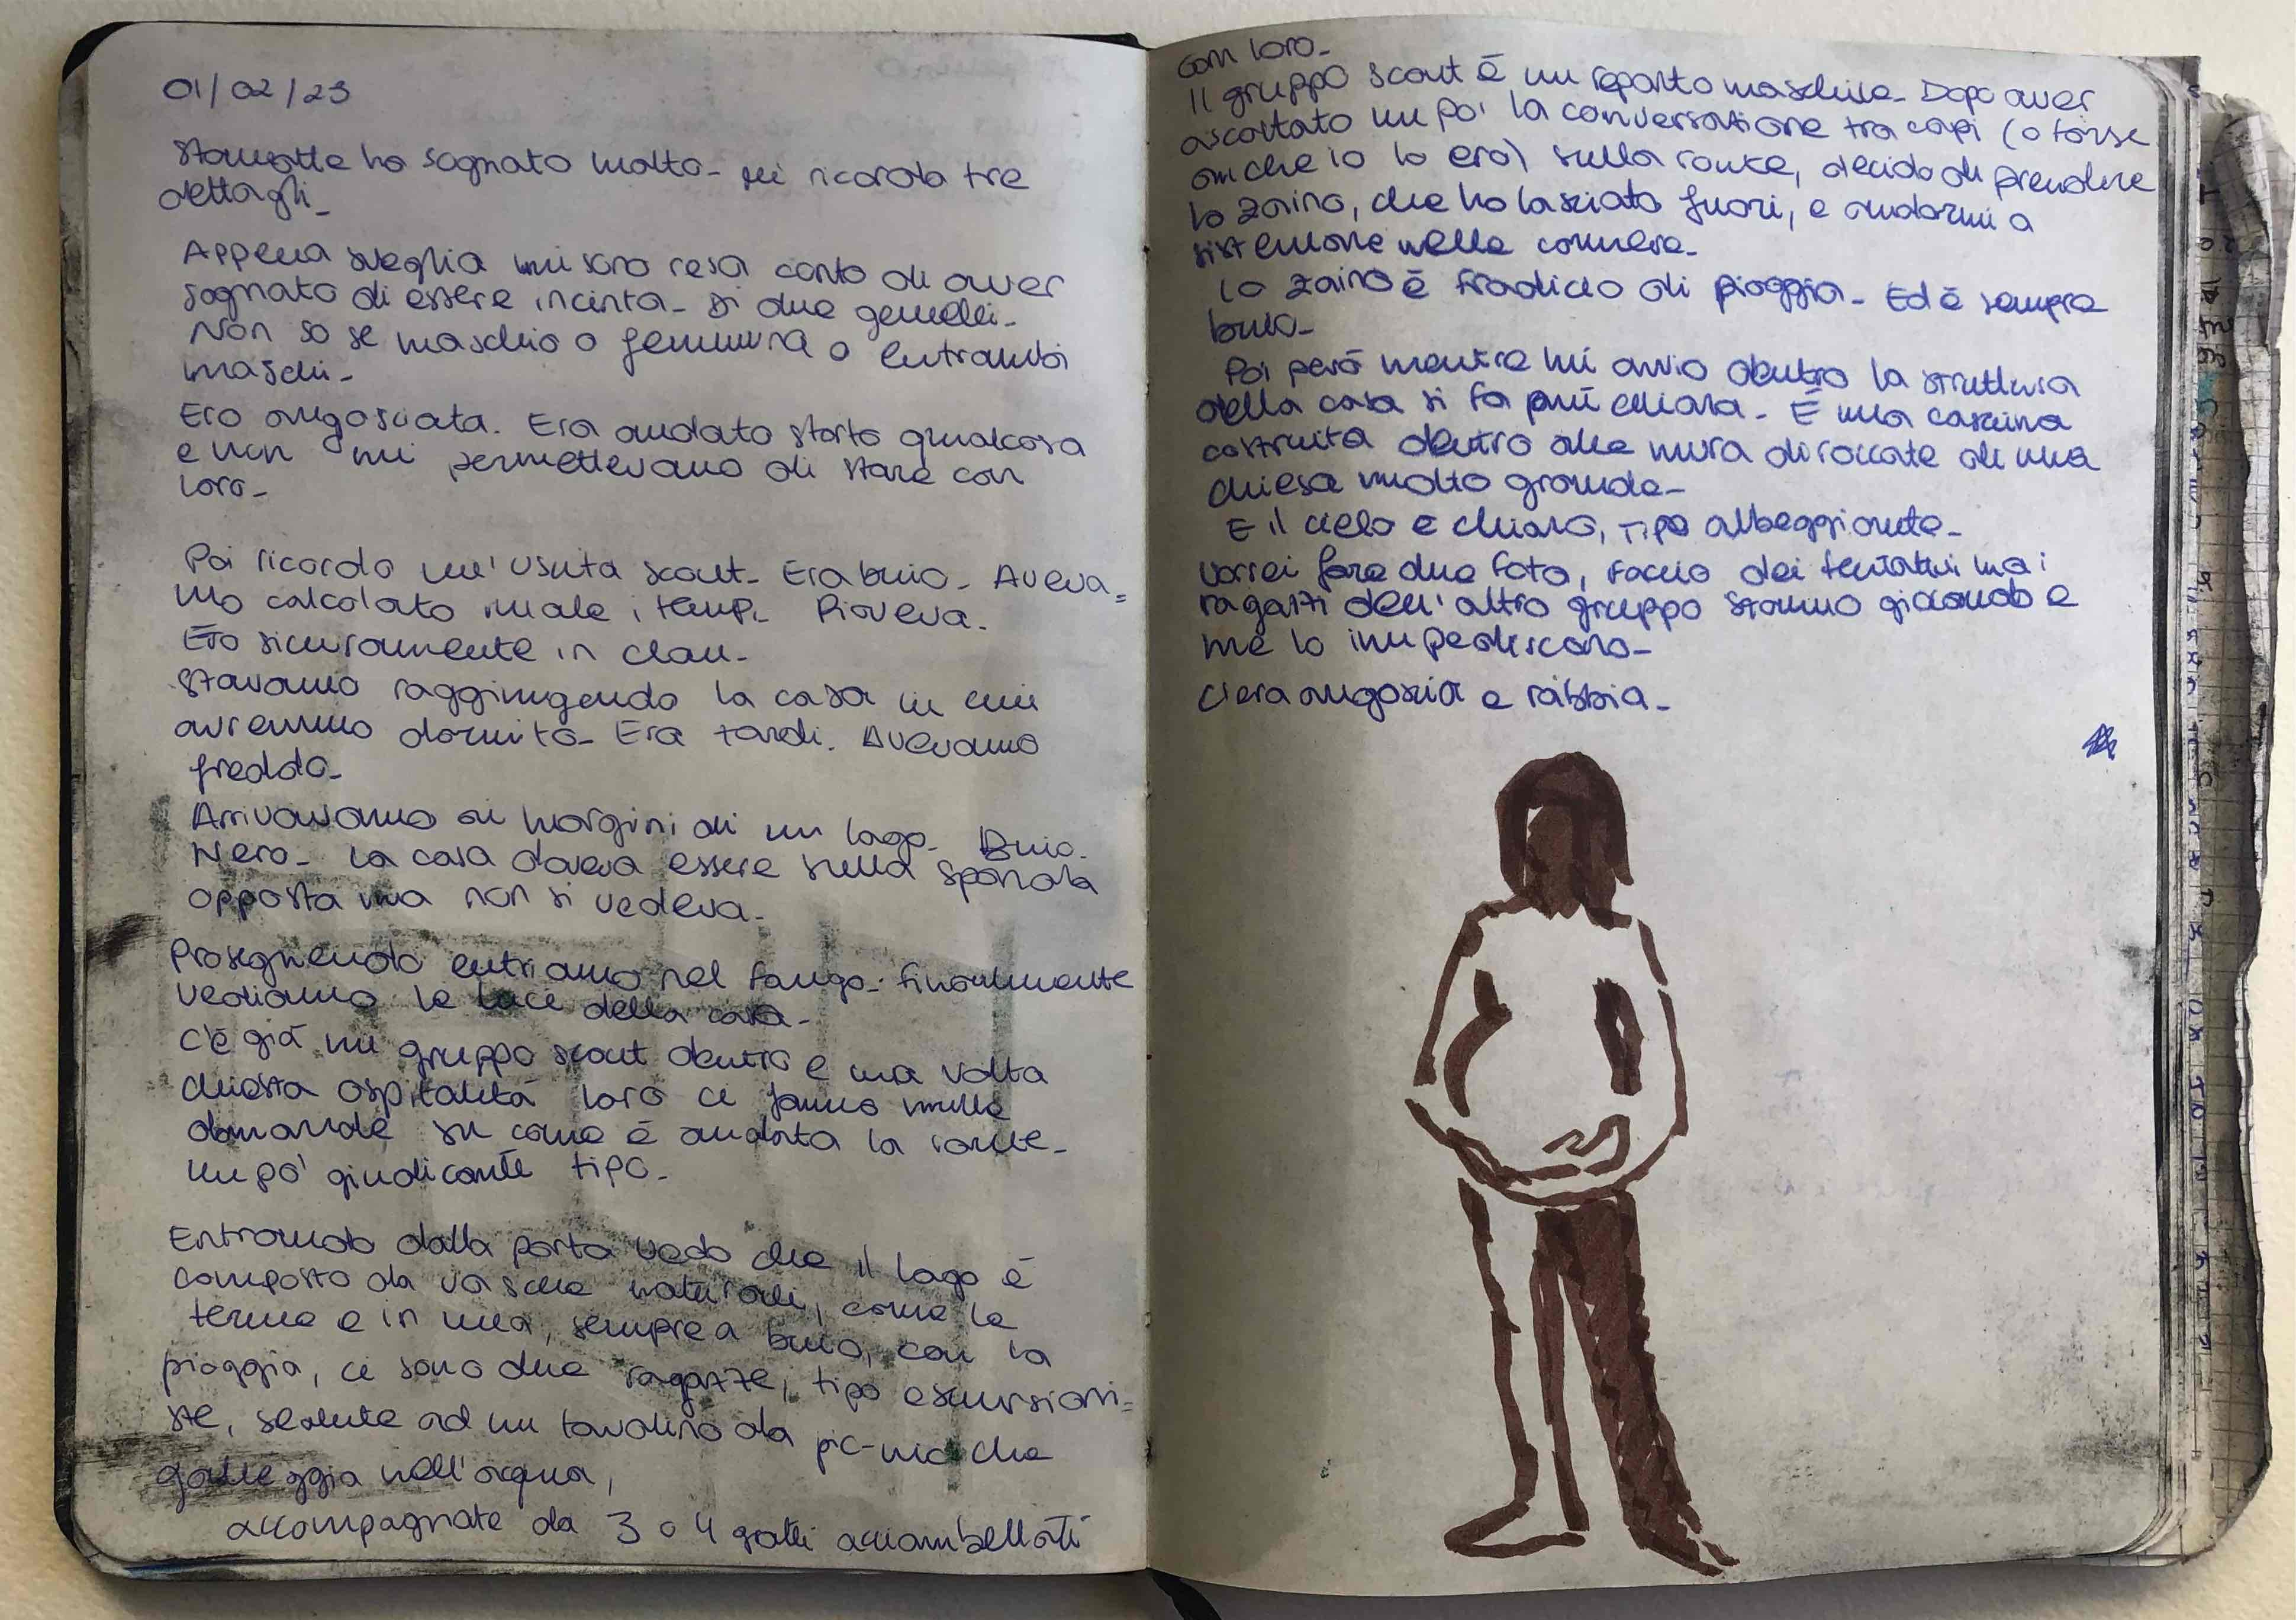 01/02/23
Stanotte ho sognato molto. Mi ricordo tre
dettagli.
Appena sveglia mi sono resa conto di aver
sognato di essere incinta. Di due gemelli.
Non so se maschio o femmina o entrambi
maschi.
Ero angosciata. Era andato storto qualcosa
e non mi permettevano di stare con
loro.
Poi ricordo un'uscita scout. Era buio. Aveva=
mo calcolato male i tempi. Pioveva.
Ero sicuramente in clan.
Stavamo raggiungendo la casa in cui
avremmo dormito. Era tardi. Avevamo
freddo.
Arrivavamo ai margini di un lago. Buio.
Nero. La casa doveva essere sulla sponda
opposta ma non si vedeva.
Proseguendo entriamo nel fango. Finalmente
vediamo le luci della casa.
C'è già un gruppo scout dentro e una volta
chiesta ospitalità loro ci fanno mille
domande su come è andata la route.
Un po' giudicante tipo.
Entrando dalla porta vedo che il lago è
composto da vasche naturali, come le
terme e in una, sempre a buio, con la
pioggia, ci sono due ragazze, tipo escursioni=
ste, sedute ad un tavolino da pic-nic che
galleggia nell'acqua,
accompagnate da 3 o 4 gatti acciambellati
con loro.
Il gruppo scout è un reparto maschile. Dopo aver
ascoltato un po' la conversazione tra capi (o forse
anche io lo ero) sulla route, decido di prendere
lo zaino, che ho lasciato fuori, e andarmi a
sistemare nelle camere.
Lo zaino è fradicio di pioggia. Ed è sempre
buio.
Poi però mentre mi avvio dentro la struttura
della casa si fa più chiara. È una cascina
costruita dentro alle mura diroccate di una
chiesa molto grande.
E il cielo è chiaro, tipo albeggiante.
Vorrei fare due foto, faccio dei tentativi ma i
ragazzi dell'altro gruppo stanno giocando e
me lo impediscono.
C'era angoscia e rabbia.